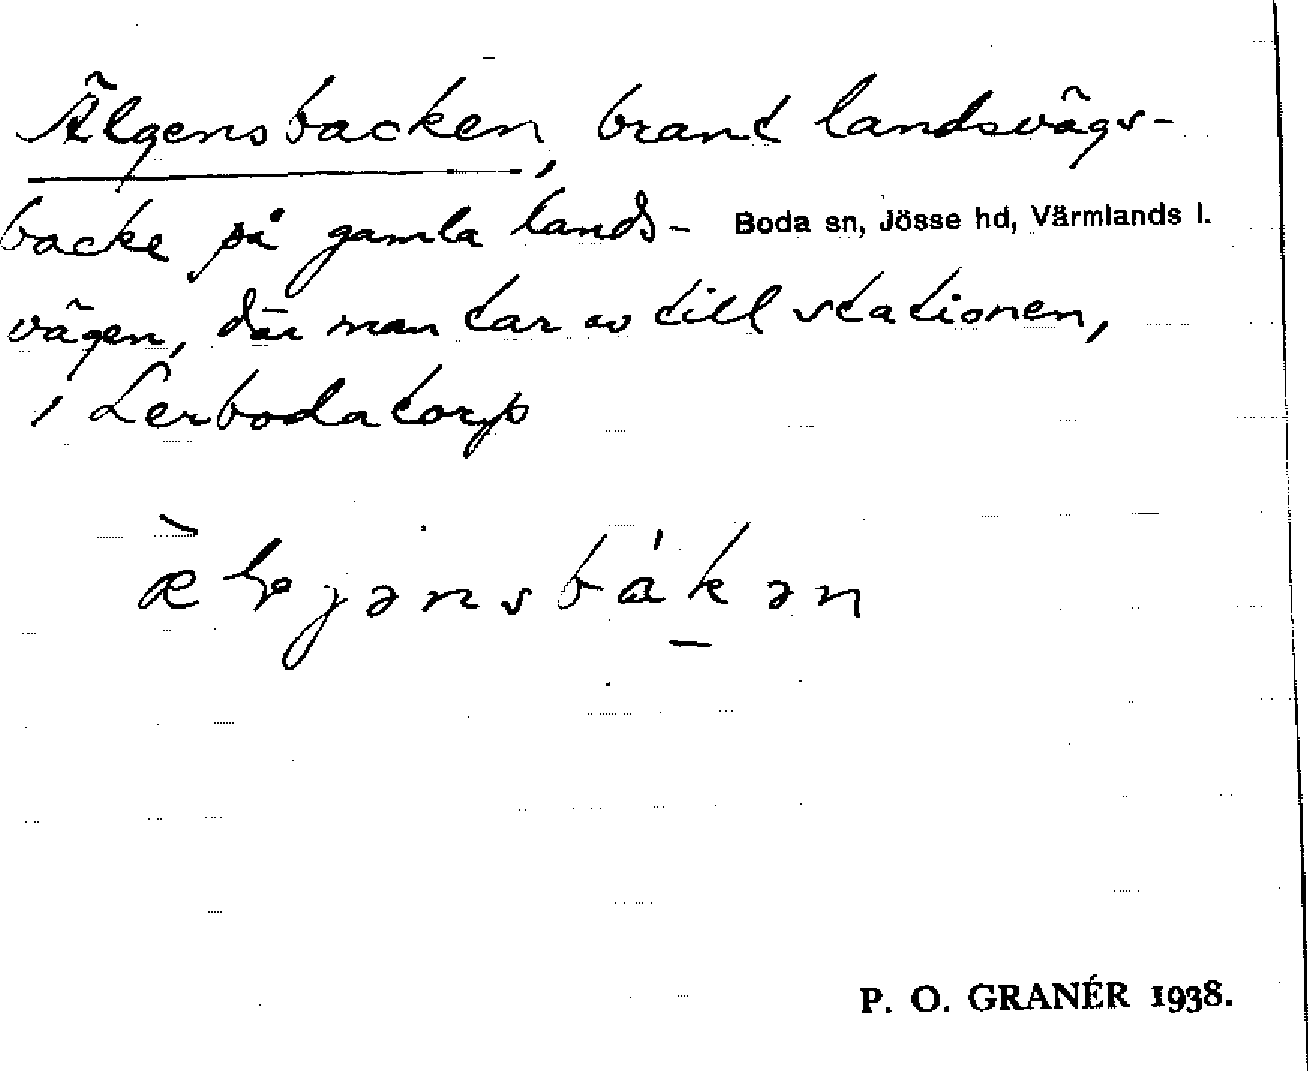 Älgensbacken, brant landsvägs-
backe på gamla lands-
Boda sn, Jösse hd, Värmlands l.
vägen, där man tar av till stationen,
i Lerbodatorp
P. O. GRANÉR 1938.